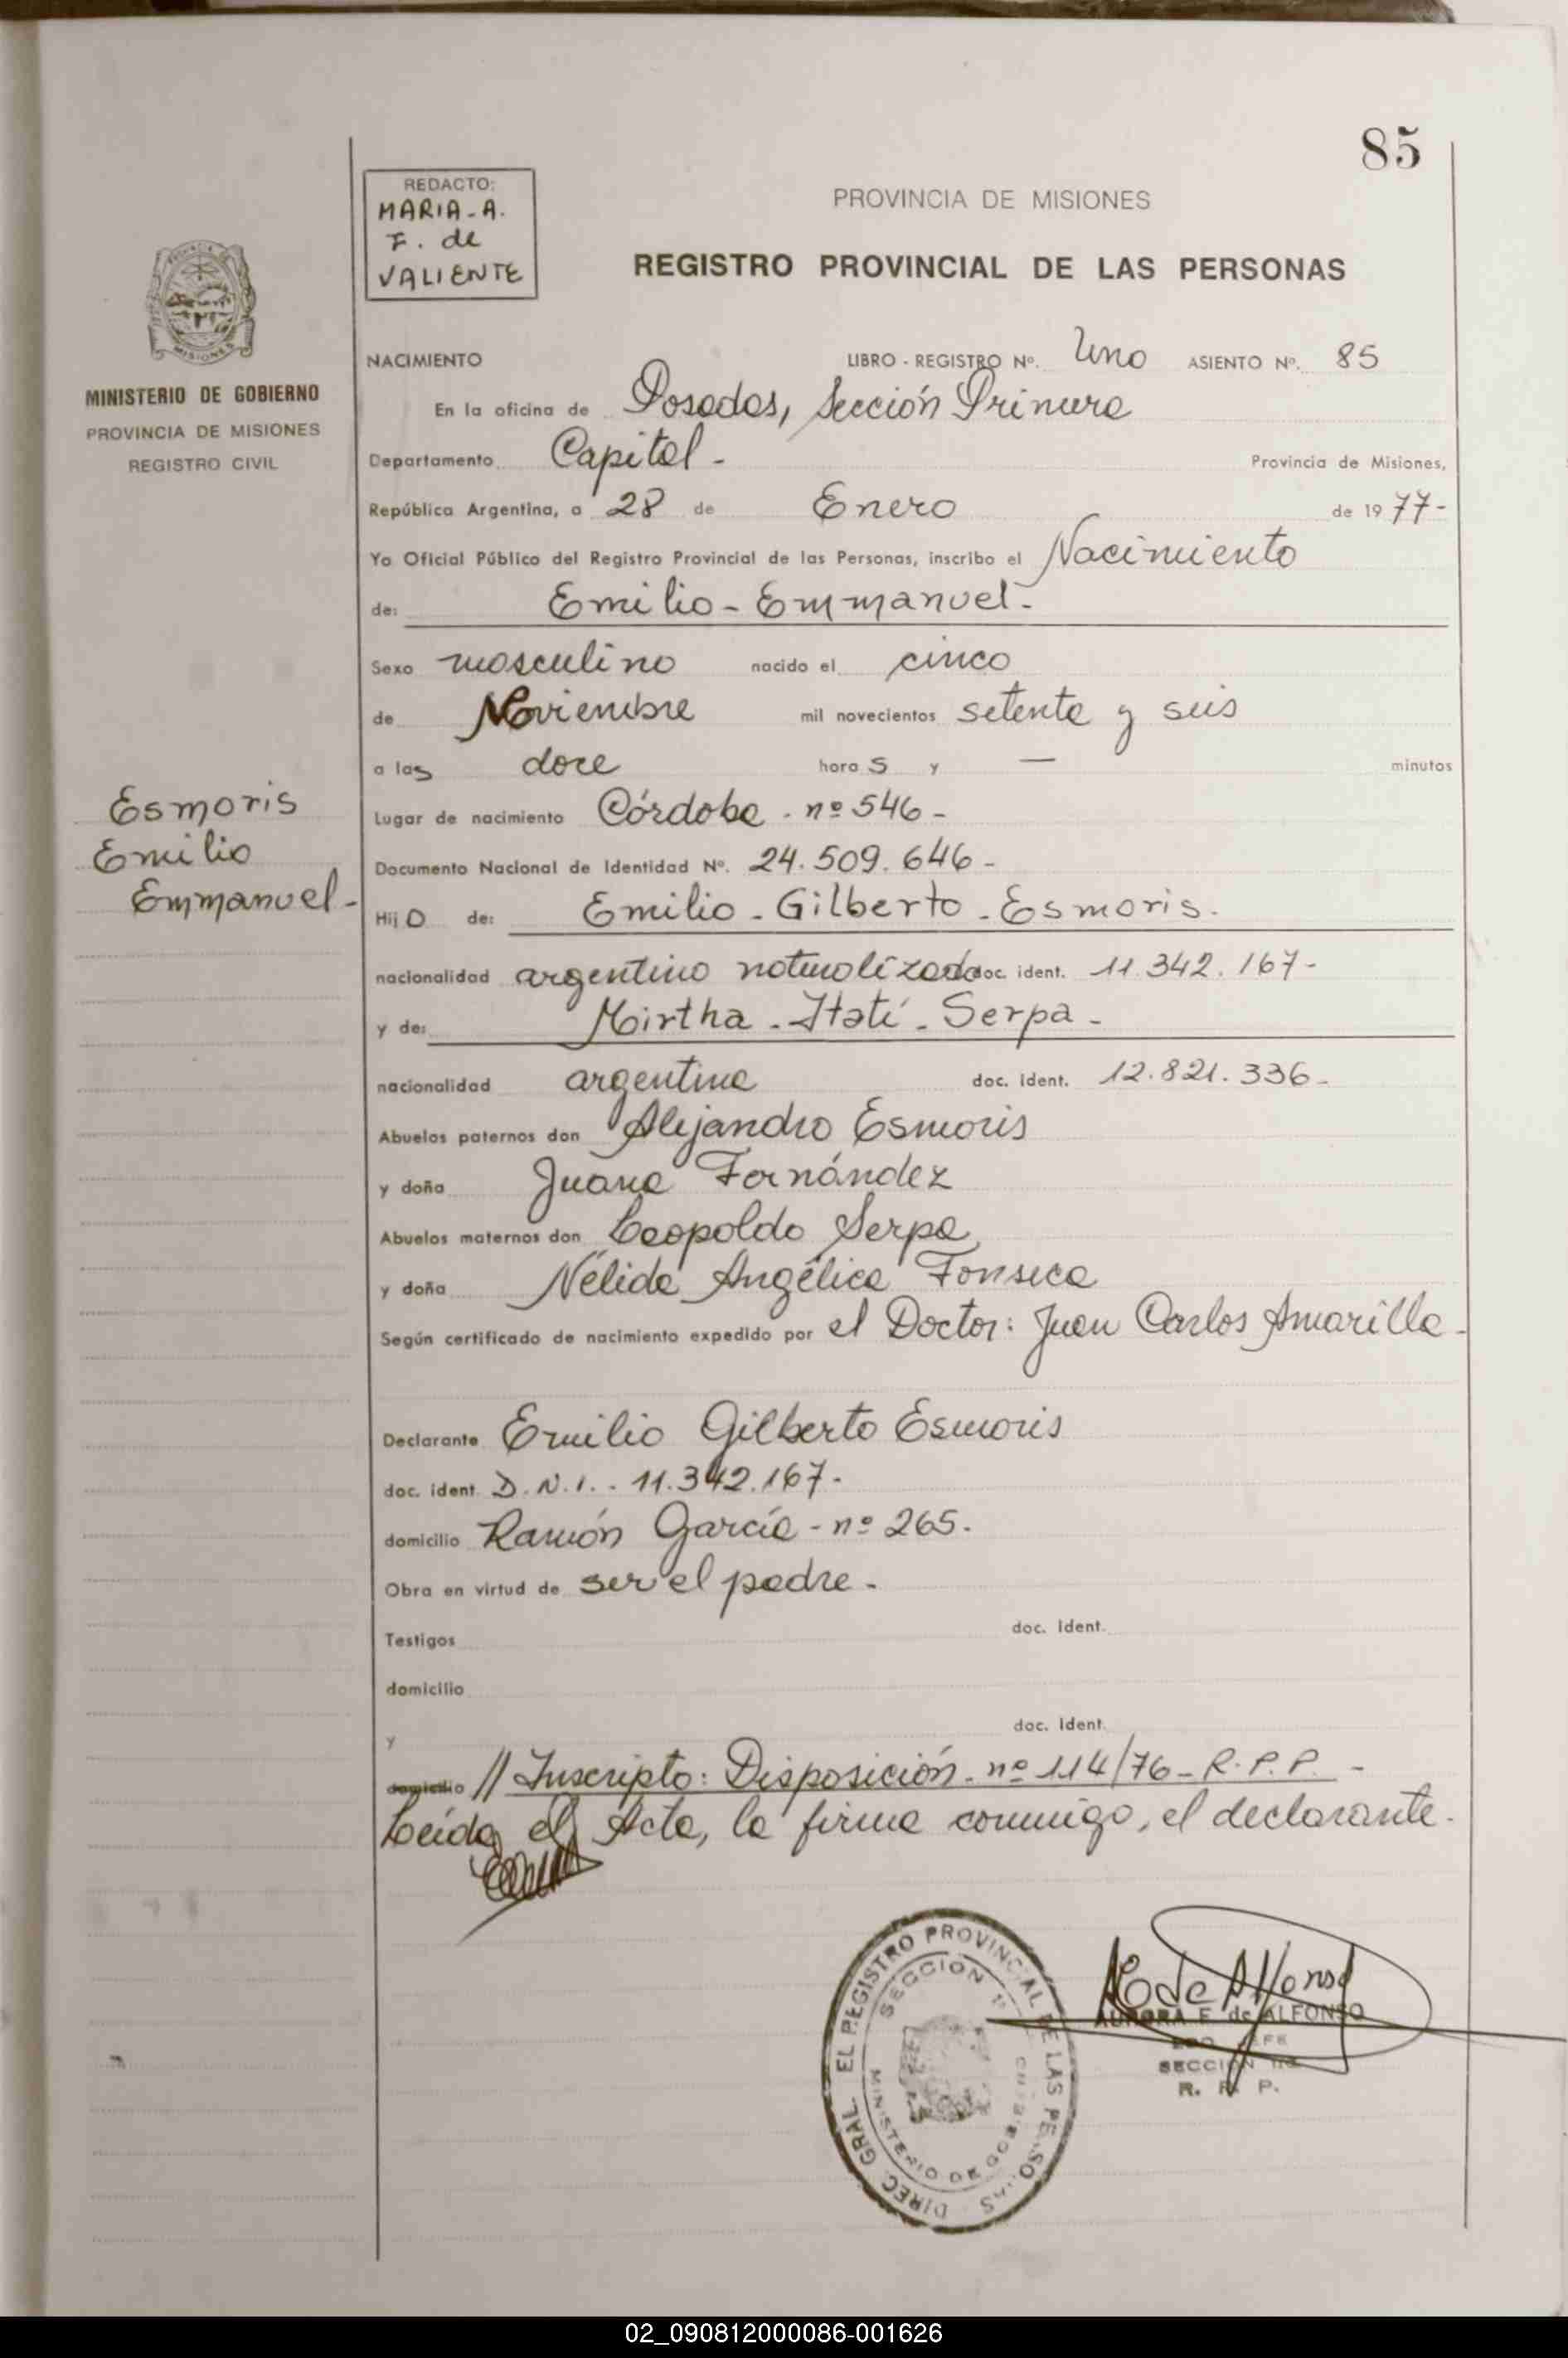 85
REDACTO:
MARIA-A.
F. de
VALIENTE
PROVINCIA DE MISIONES
REGISTRO PROVINCIAL DE LAS PERSONAS
MISIONES
MINISTERIO DE GOBIERNO
PROVINCIA DE MISIONES
REGISTRO CIVIL
NACIMIENTO LIBRO - REGISTRO Nº. Uno ASIENTO Nº. 85
En la oficina de Posadas, Sección Primera
Departamento Capital - Provincia de Misiones,
República Argentina, a 28 de Enero de 1977-
Yo Oficial Público del Registro Provincial de las Personas, inscribo el Nacimiento
de: Emilio - Emmanuel -
Sexo masculino nacido el cinco
de Noviembre mil novecientos setenta y seis
a las doce horas y — minutos
Lugar de nacimiento Córdoba - nº 546 -
Documento Nacional de Identidad Nº. 24.509.646 -
Esmoris
Emilio
Emmanuel -
Hijo de: Emilio - Gilberto - Esmoris.
nacionalidad argentino naturalizado doc. ident. 11.342.167-
y de: Mirtha - Itatí - Serpa -
nacionalidad argentina doc. ident. 12.821.336-
Abuelos paternos don Alejandro Esmoris
y doña Juana Fernández
Abuelos maternos don Leopoldo Serpa
y doña Nélida Angélica Fonseca
Según certificado de nacimiento expedido por el Doctor: Juan Carlos Amarilla -
Declarante Emilio Gilberto Esmoris
doc. ident. D.N.I. - 11.342.167-
domicilio Ramón García - nº 265.
Obra en virtud de ser el padre -
Testigos doc. ident.
domicilio
y doc. ident.
domicilio // Inscripto: Disposición - nº 114/76 - R.P.P. -
Leída el Acta, la firma conmigo, el declarante.
DIREC. GRAL. EL REGISTRO PROVINCIAL DE LAS PERSONAS
SECCION 1ª
MINISTERIO DE GOBIERNO
A F de Alfonso
AURORA F. de ALFONSO
JEFE
SECCION 1ra
R. P. P.
02_090812000086-001626